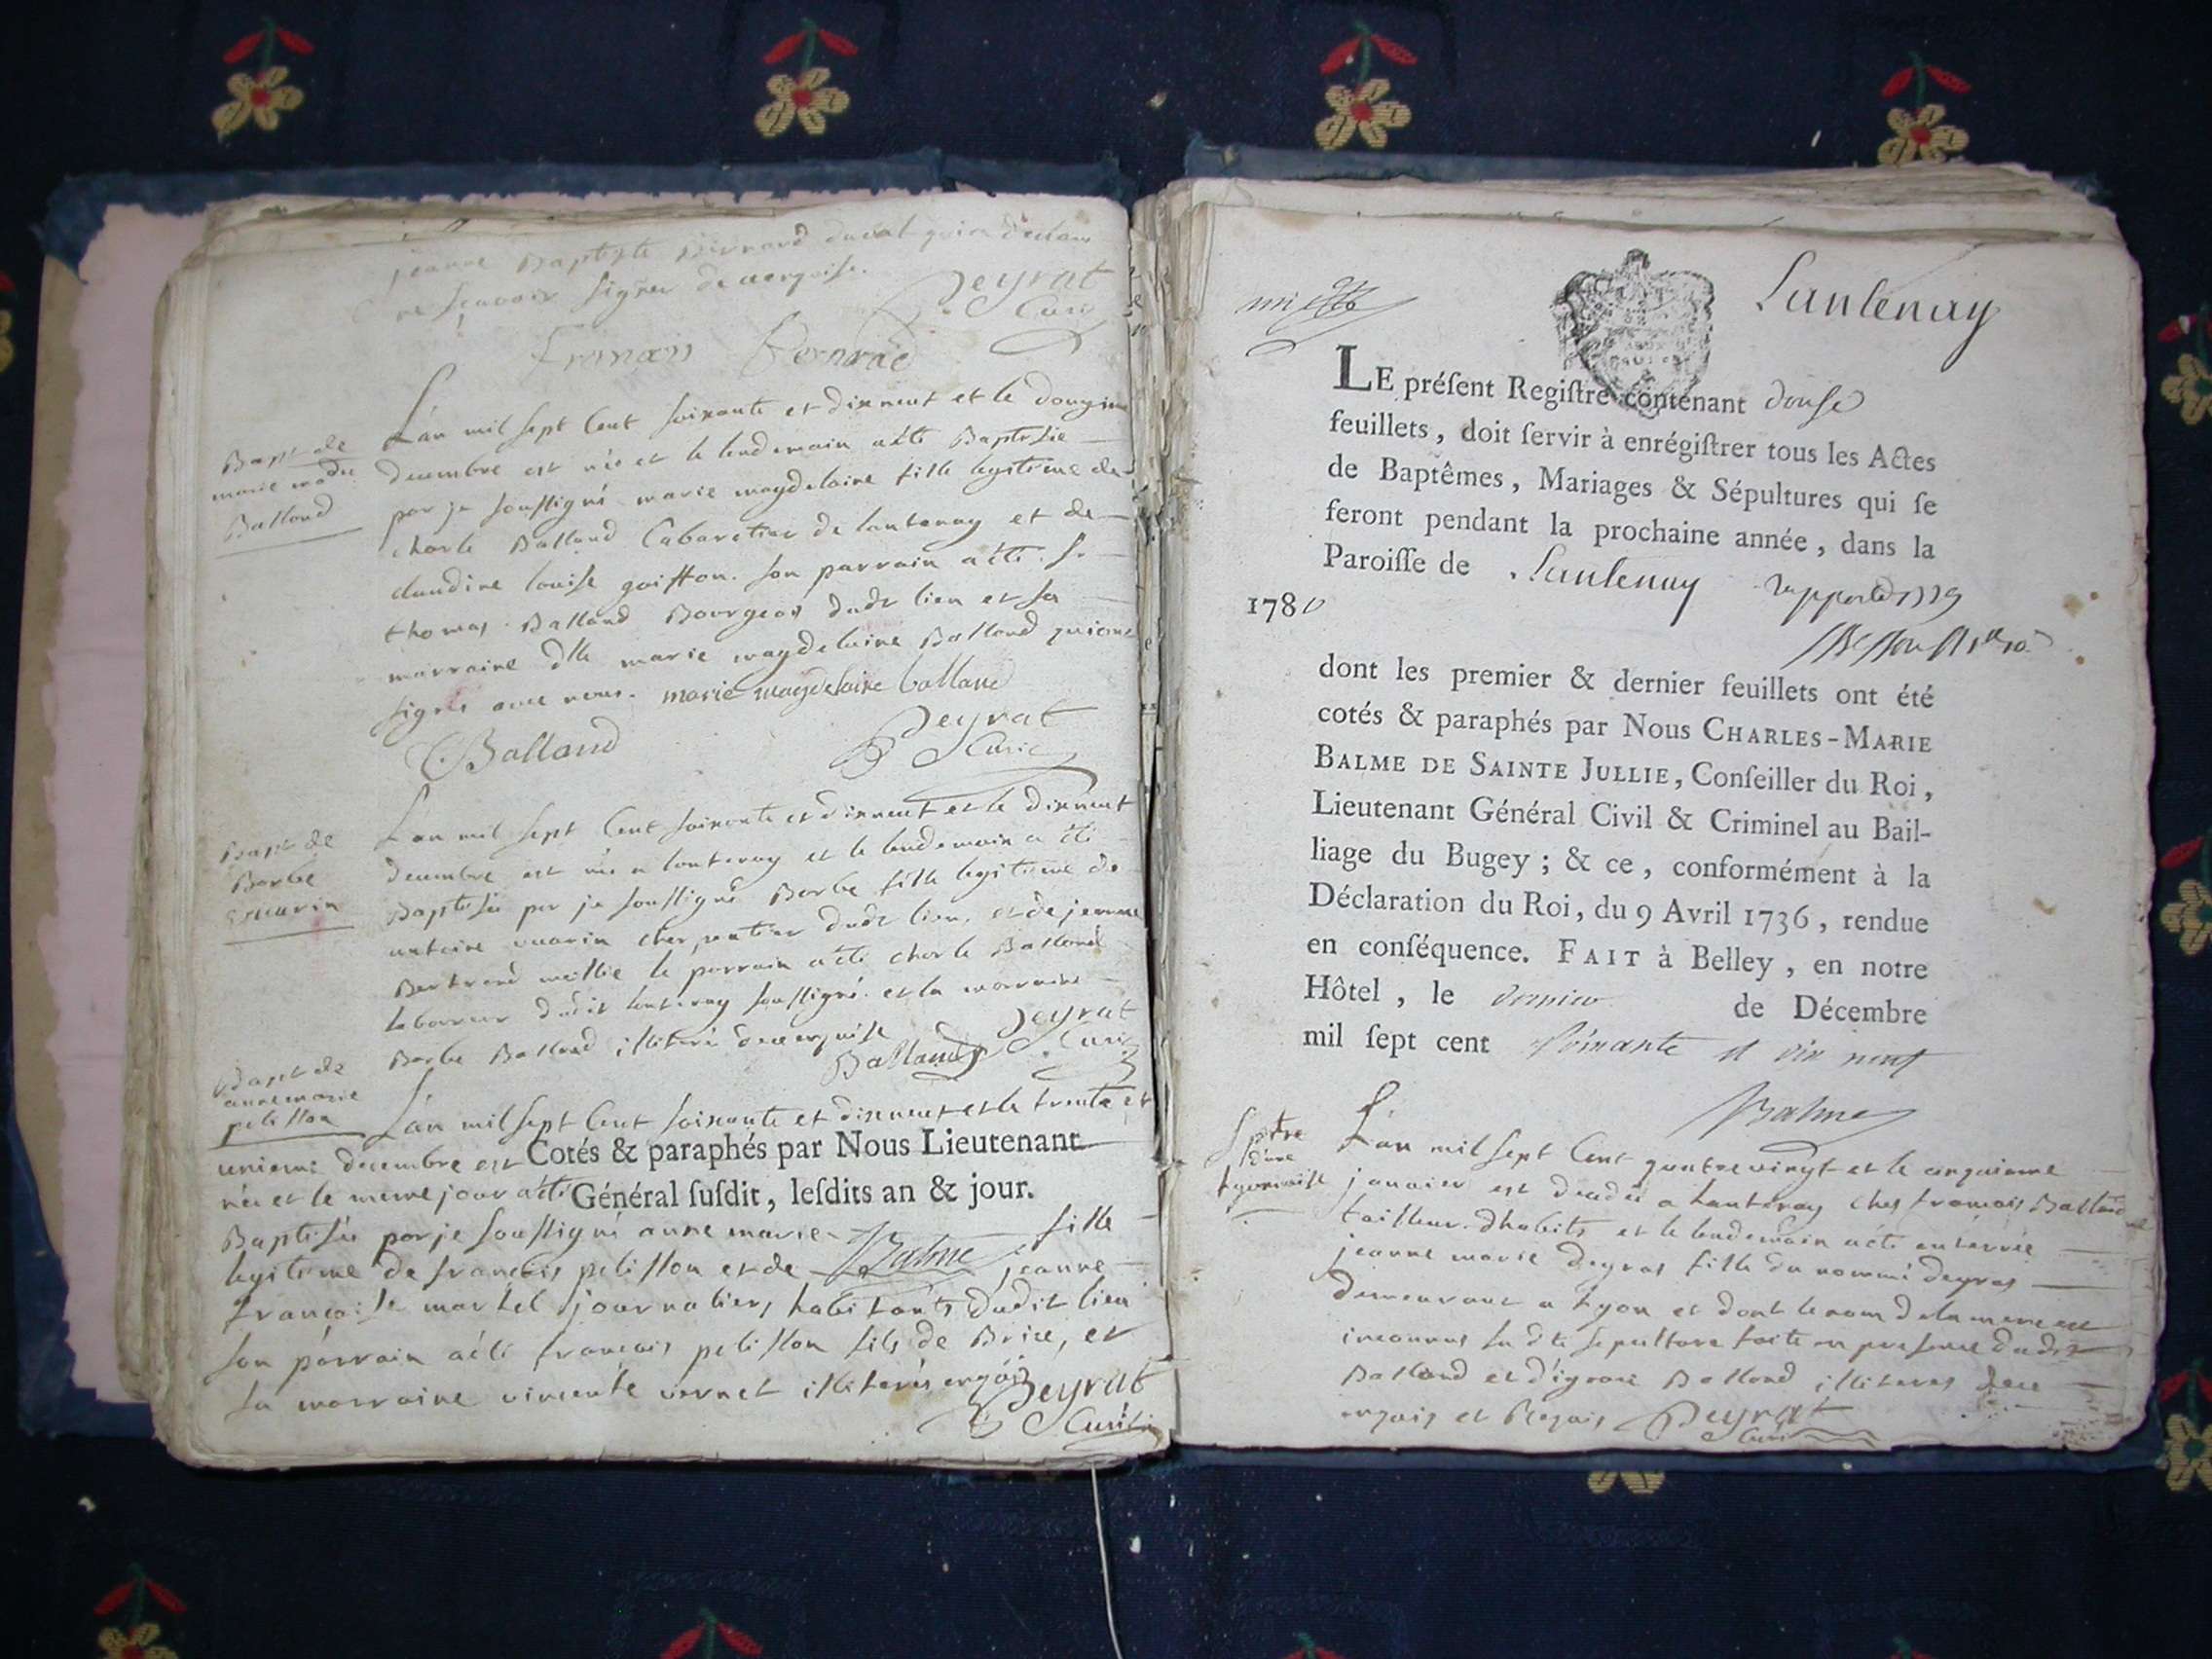 jeanne Baptiste Bernard duval qui a declaré
ne scavoir signer de ce requise.
Peyrat
Curé
François Bernard
Bapt de
marie made
Balland
L'an mil sept Cent soixante et dixneuf et le douzieme
decembre est née et le lendemain a été Baptisée
par je soussigné marie magdelaine fille legitime de
charle Balland Cabaretier de lantenay et de
claudine louise goiffon. son parrain a été Sr
thomas Balland Bourgeois dudt lieu et sa
marraine dlle marie magdelaine Balland qui ont
signé avec nous. marie magdelaine balland
Balland
Peyrat
Curé
Bapt de
Barbe
vuarin
L'an mil sept Cent soixante et dixneuf et le dixneuf
decembre est née a lantenay et le lendemain a été
Baptisée par je soussigné Barbe fille legitime de
antoine vuarin charpentier dudt lieu et de jeanne
Bertrand le parrain a été charle Balland
laboureur dudit lantenay soussigné et la marraine
Barbe Balland illiterée de ce requise
Balland
Peyrat
Curé
Bapt de
anne marie
pelisson
L'an mil sept Cent soixante et dixneuf et le trente et
unieme decembre est Cotés & paraphés par Nous Lieutenant
née et le meme jour a été Général ſuſdit, leſdits an & jour.
Baptisée par je soussigné anne marie fille
legitime de francois pelisson et de Balme jeanne
francoise martel journaliers habitants dudit lieu
son parrain a été francois pelisson fils de Brice, et
sa marraine vincente vernet illiterés enquis
Peyrat
Curé
Lantenay
LE préſent Regiſtre contenant douse
feuillets, doit ſervir à enrégiſtrer tous les Actes
de Baptêmes, Mariages & Sépultures qui ſe
feront pendant la prochaine année, dans la
Paroiſſe de Lantenay rapporté 1779
1780
dont les premier & dernier feuillets ont été
cotés & paraphés par Nous CHARLES-MARIE
BALME DE SAINTE JULLIE, Conſeiller du Roi,
Lieutenant Général Civil & Criminel au Bail-
liage du Bugey ; & ce, conformément à la
Déclaration du Roi, du 9 Avril 1736, rendue
en conſéquence. FAIT à Belley, en notre
Hôtel, le premier de Décembre
mil ſept cent soixante et dix neuf
Balme
Sptre
d'une
lyonnoise
L'an mil sept Cent quatre vingt et le cinquieme
janvier est decedée a lantenay ches francois Balland
tailleur d'habits et le lendemain a été enterrée
jeanne marie deyras fille du nommé deyras
demeurant a Lyon et dont le nom de la mere est
inconnu sa dte sepulture faite en presence dudt
Balland et d'ignace Balland illiteres de ce
enquis et Requis Peyrat
Curé